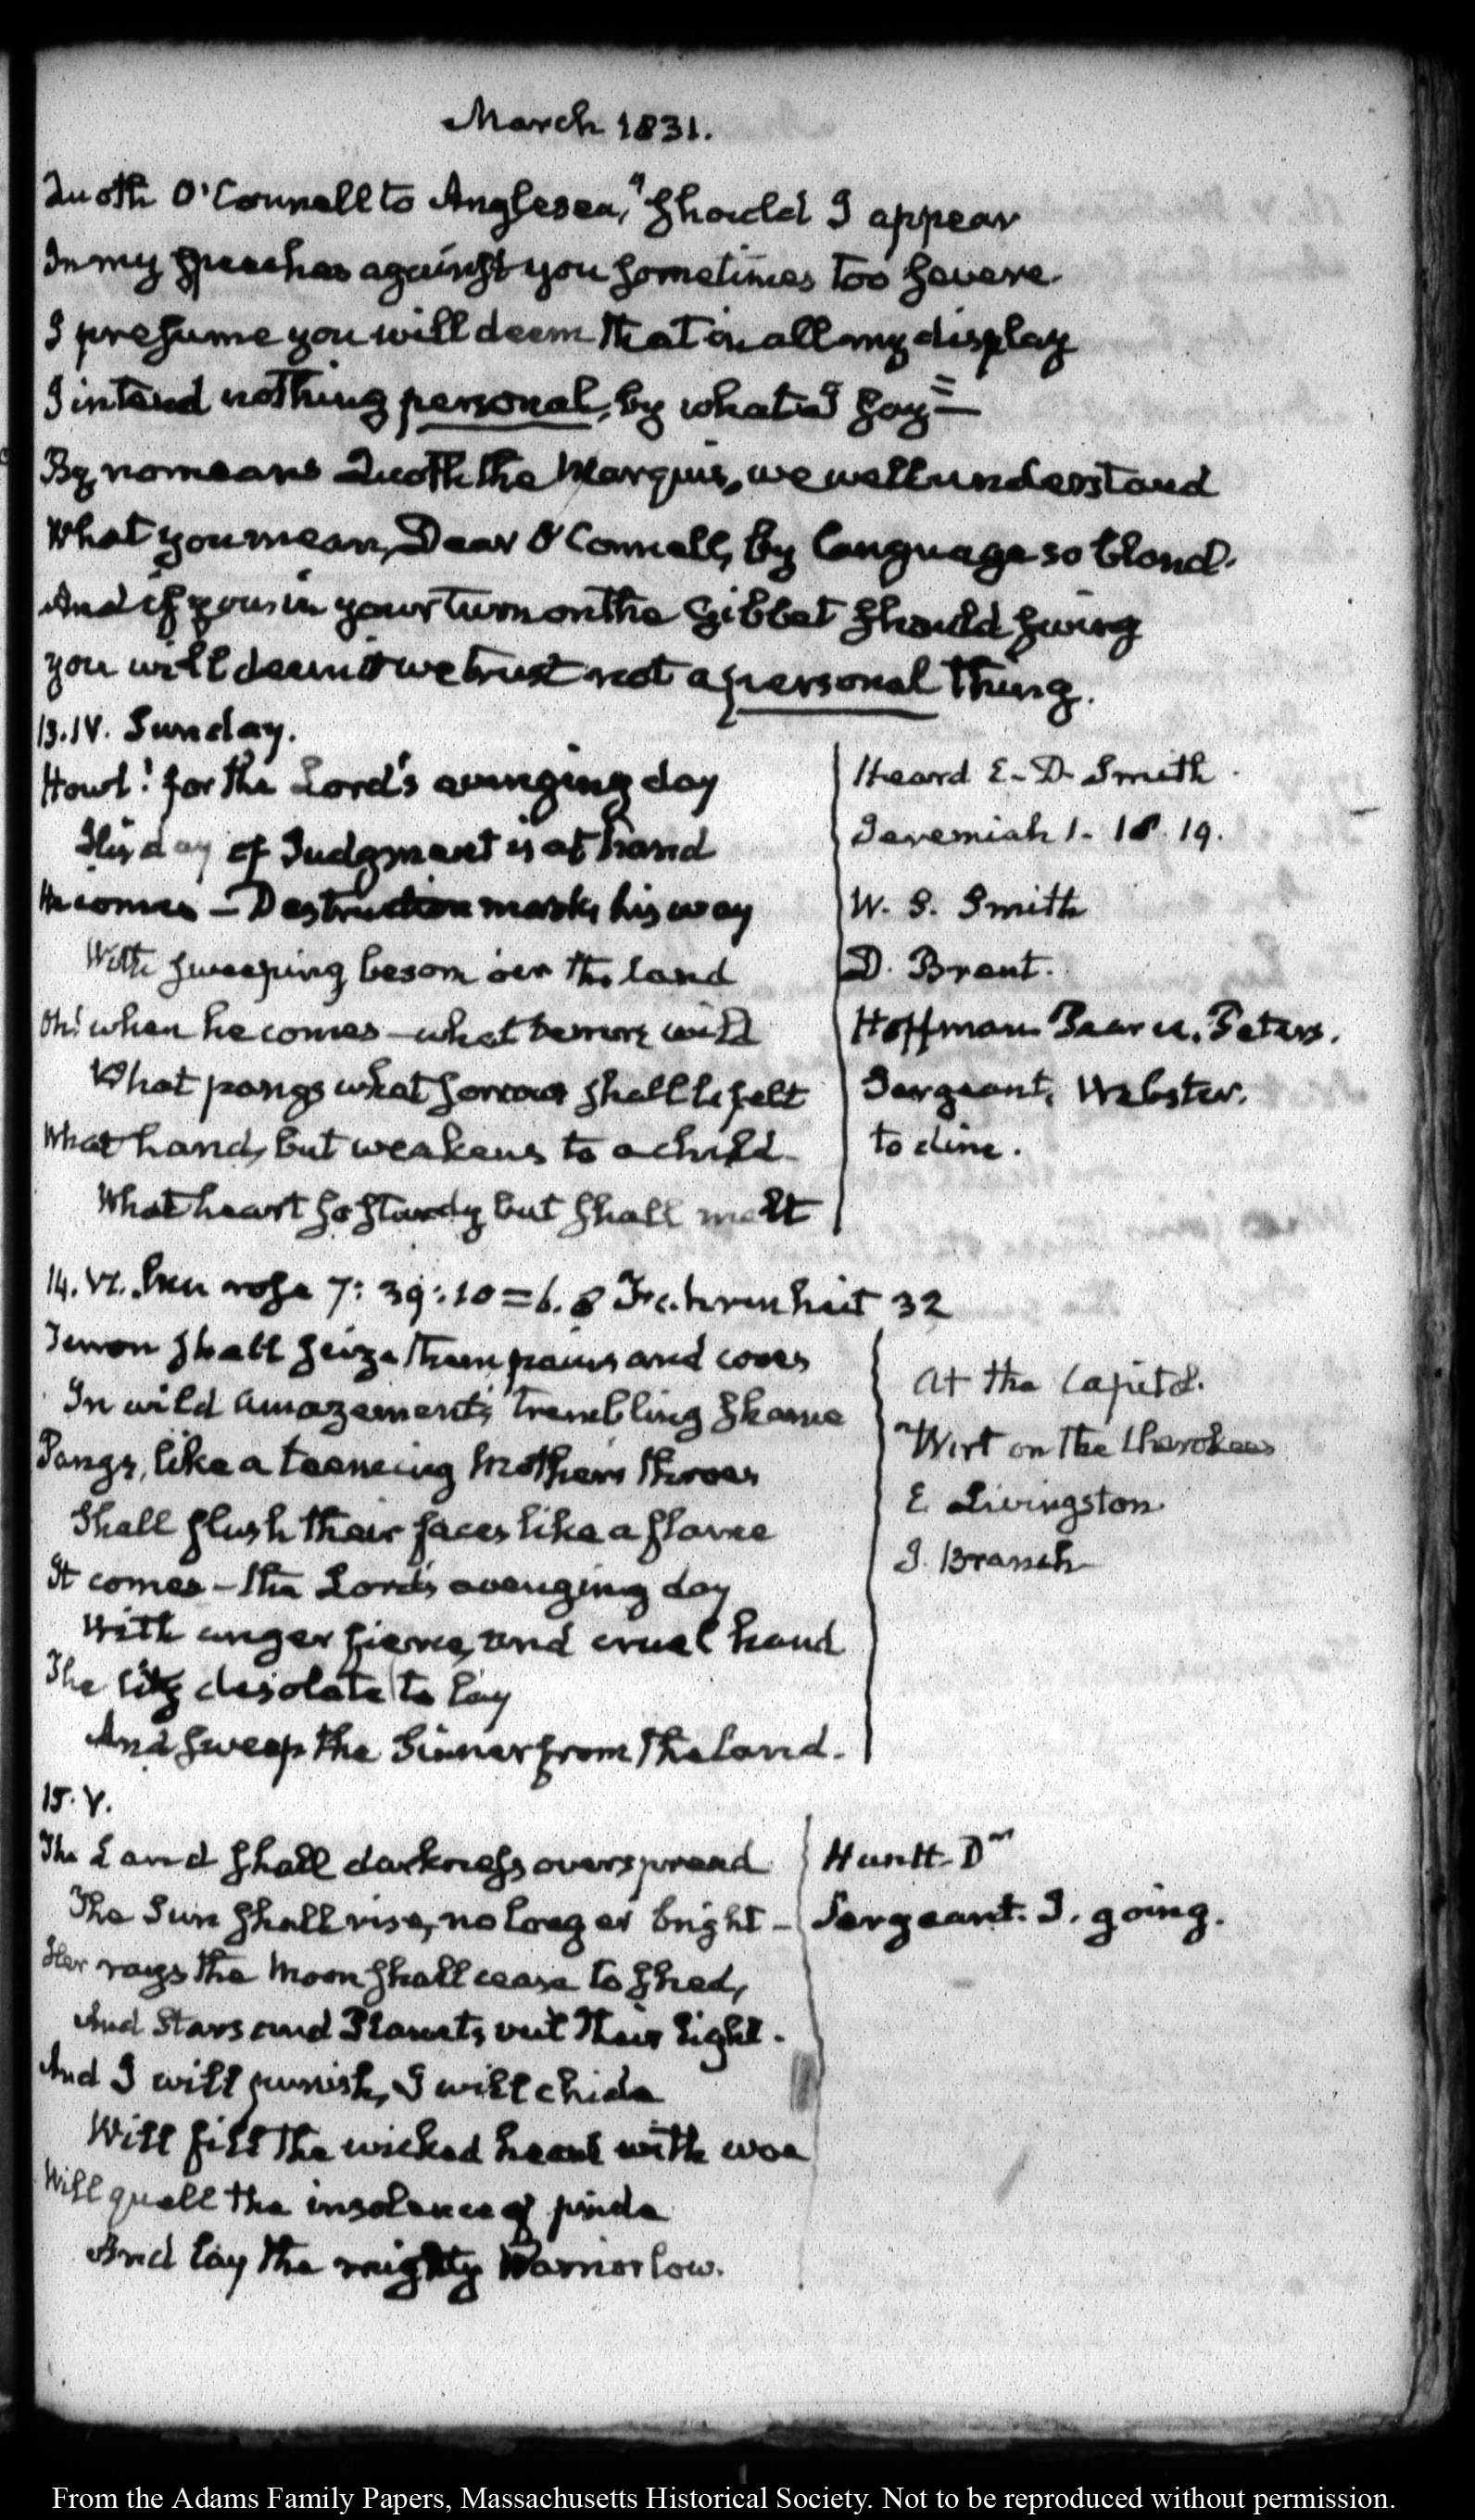 March 1831.
Quoth O'Connell to Anglesea, "Should I appear
In my speeches against you sometimes too severe
I presume you will deem that in all my display
I intend nothing personal, by what I say =
By no means Quoth the Marquis, we well understand
What you mean, Dear O'Connell, by language so bland.
And if you in your turn on the Gibbet should swing
you will deem it we trust not a personal thing.
13. IV. Sunday.
Howl! for the Lord's avenging day
His day of Judgment is at hand
He comes — Destruction marks his way
With sweeping besom o'er the land
Oh! when he comes — what terrors wild
What pangs what sorrows shall be felt
What hand, but weakens to a child
What heart so sturdy but shall melt
Heard E. D. Smith
Jeremiah 1. 18. 19.
W. S. Smith
D. Brent.
Hoffman Peters.
Sergeant, Webster.
to dine.
14. VI. Sun rose 7:39:10 = 6.8 Fahrenheit 32
Terror shall seize them pains and woes
In wild amazement, trembling shame
Pangs, like a teeming Mother's throes
Shall flush their faces like a flame
It comes — the Lord's avenging day
With anger fierce, and cruel hand
The City desolate to lay
And sweep the Sinner from the land.
At the Capitol.
Wirt on the Cherokees
E Livingston
J. Branch
15. V.
The Land shall darkness overspread
The Sun shall rise, no longer bright —
Her rays the Moon shall cease to shed,
And Stars and Planets veil their light.
And I will punish, I will chide
Will fill the wicked heart with woe
Will quell the insolence of pride
And lay the mighty Warrior low.
Huntt. Dr
Sergeant. J. going.
From the Adams Family Papers, Massachusetts Historical Society. Not to be reproduced without permission.